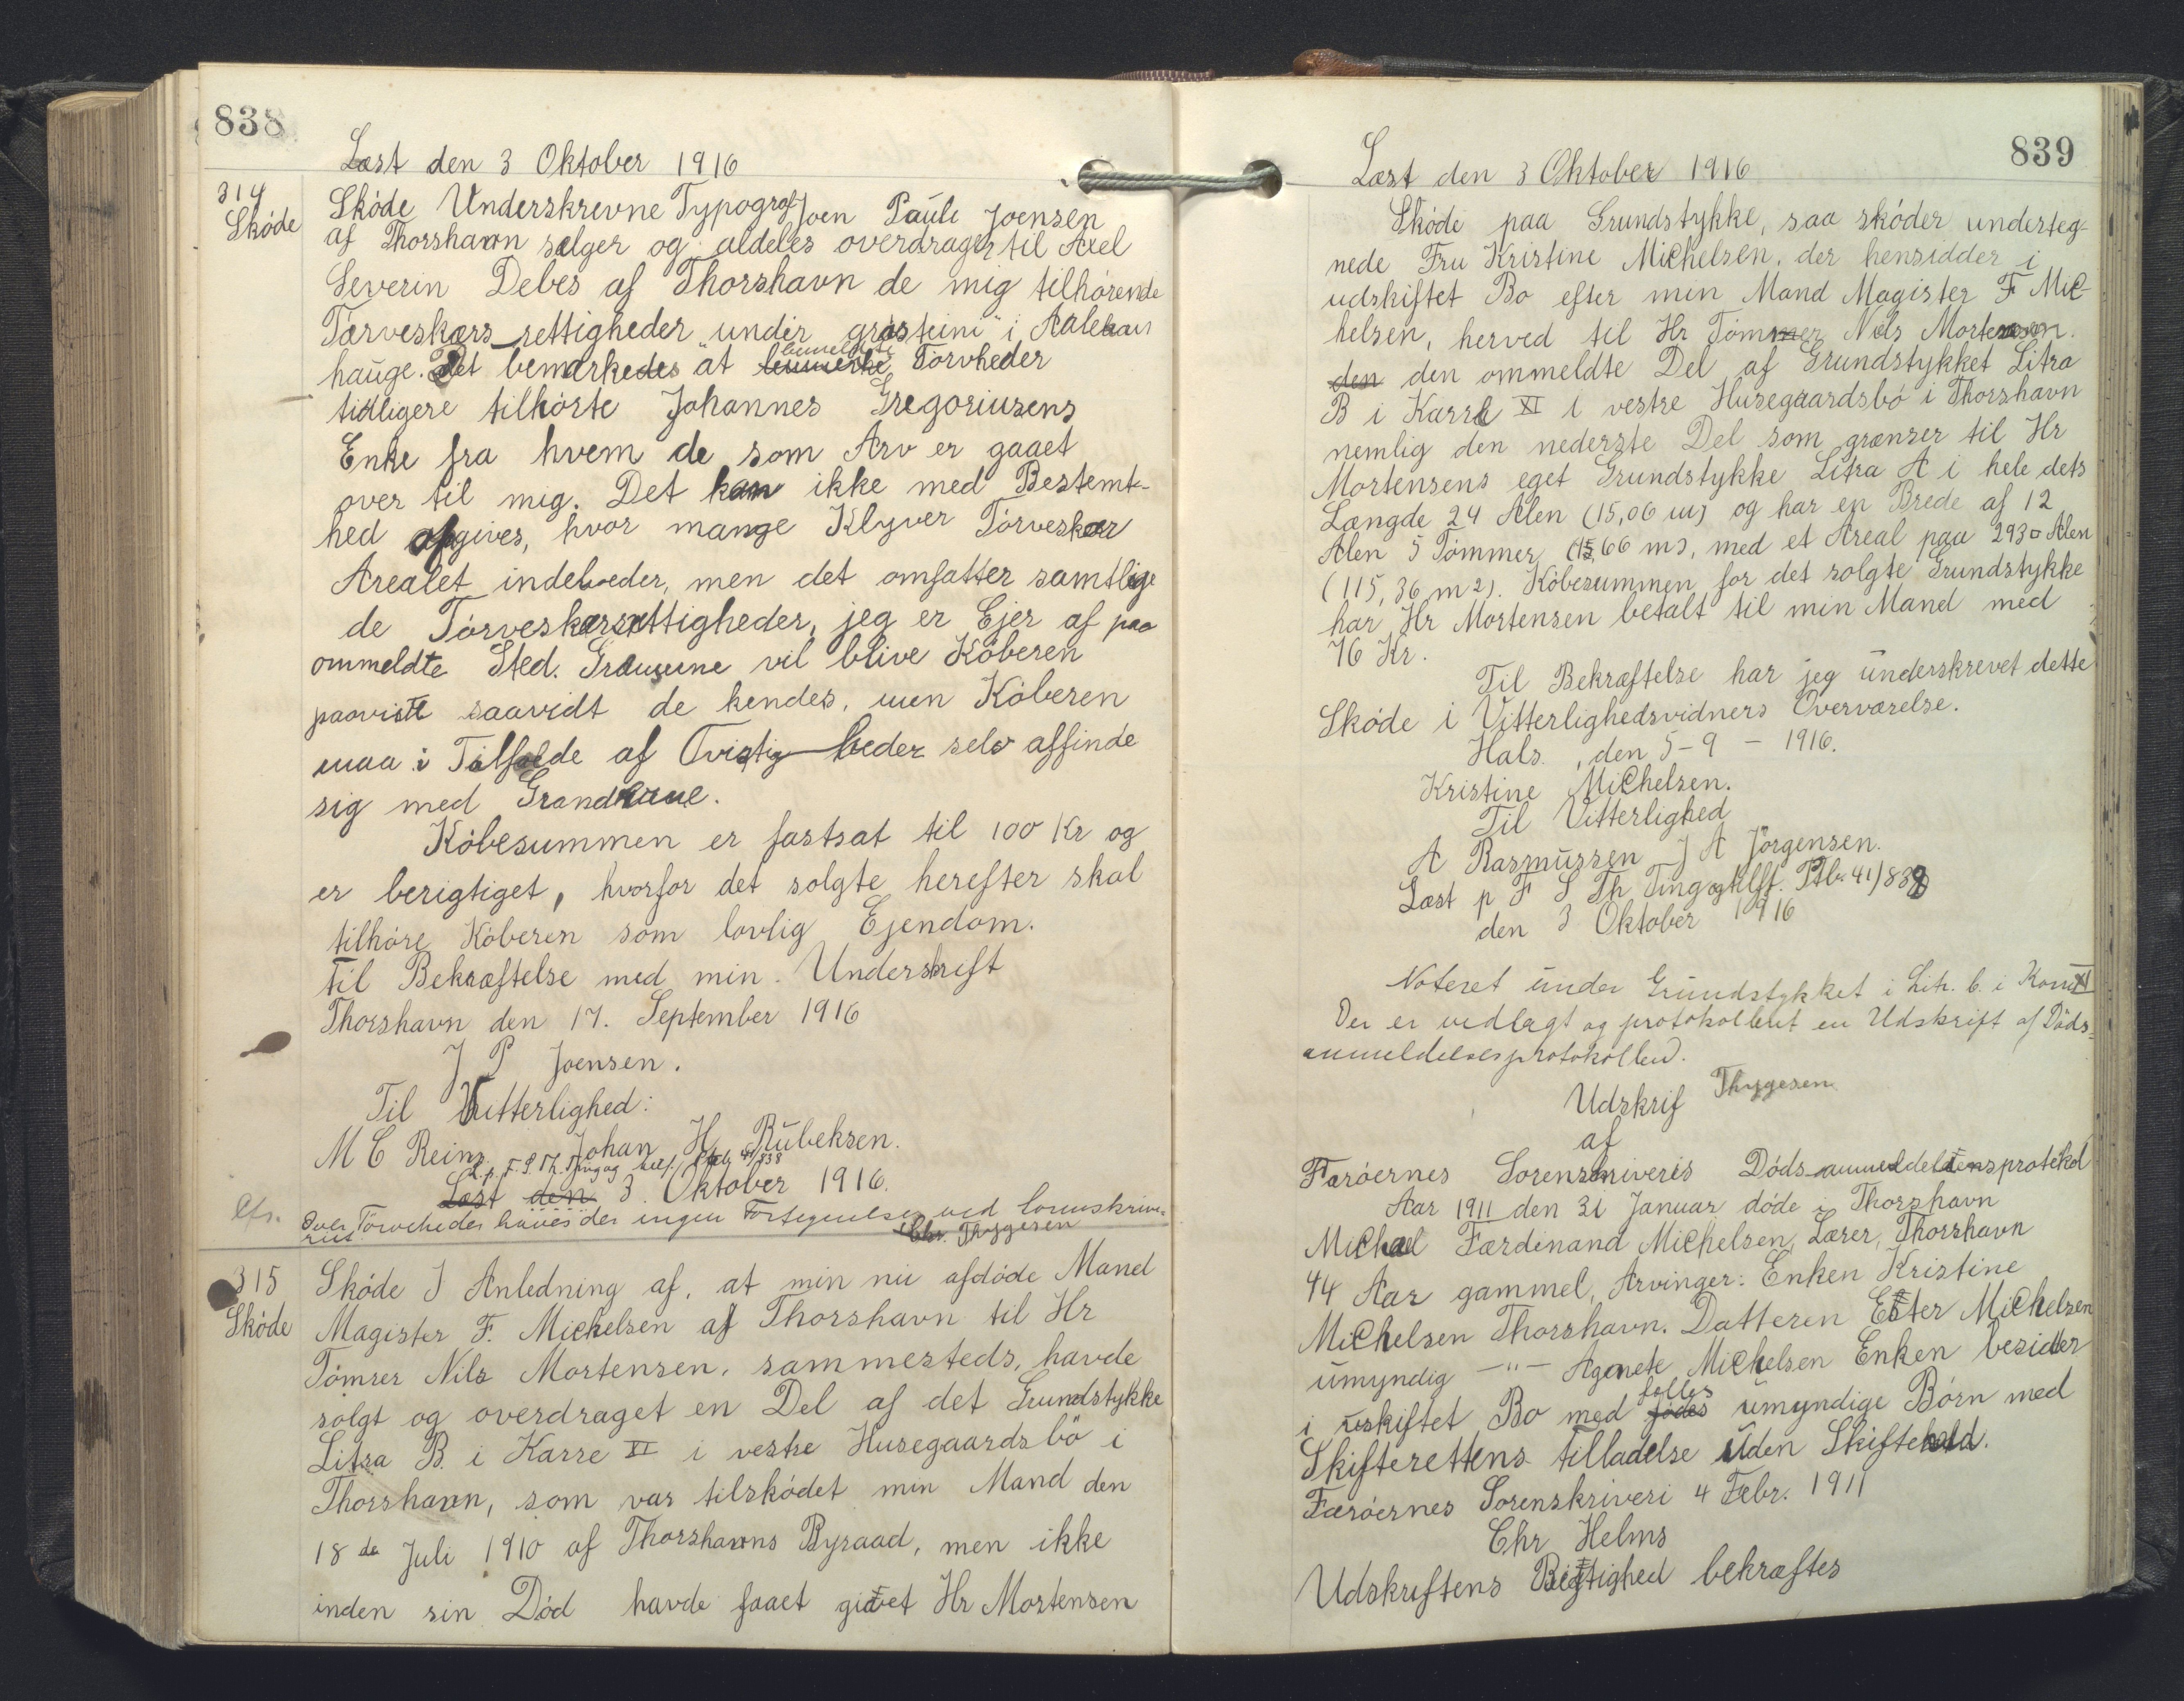 838
Læst den 3 Oktober 1916
314
Skóde
Skóde Underskrevne Typograf Joen Pauli Joensen
af Thorshavn sælger og aldeles overdrager til Axel
Severin Debes af Thorshavn de mig tilhórende
Tørveskærs rettigheder under grästeini" i
hauge. Det bemærkedes at bemeldte Tórvheder
tidligere tilhórte Johannes Gregoriusens
Enke fra hvem de som Arv er gaaet
over til mig. Det kan ikke med Bestemt-
hed opgives, hvor mange Klyver Tórveskær
Arealet indeholder, men det omfatter samtlige
de Tórveskærsrettigheder, jeg er Ejer af paa
ommeldte Sted. Grænserne vil blive Kóberen
paavist saavidt de kendes, men Kóberen
maa i Tilfælde af Tvistigheder selv affinde
sig med Granderne.
Kóbesummen er fastsat til 100 Kr og
er berigtiget, hvorfor det solgte herefter skal
tilhóre Kóberen som lovlig Ejendom.
Til Bekræftelse med min Underskrift
Thorshavn den 17. September 1916
J P Joensen.
Til Vitterlighed:
M C Reins Johan H Rubeksen.
L. p. F. S. Th. Tingog Ptb. 41/838
Læst den 3. Oktober 1916.
Over Tórveheder haves der ingen Fortegnelse ved Sorenskrive-
riet Chr. Thygesen
315
Skóde
Skóde I Anledning af, at min nu afdóde Mand
Magister F. Michelsen af Thorshavn til Hr
Tómrer Nils Mortensen, sammesteds, havde
solgt og overdraget en Del af det Grundstykke
Litra B. i Karre XI i vestre Husegaardsbö i
Thorshavn, som var tilskódet min Mand den
18de Juli 1910 af Thorshavns Byraad, men ikke
inden sin Död havde faaet givet Hr Mortensen
839
Læst den 3 Oktober 1916
Skóde paa Grundstykke, saa skóder underteg-
nede Fru Kristine Michelsen, der hensidder i
udskiftet Bo efter min Mand Magister F Mic-
helsen, herved til Hr Tómmer Nils Mortensen.
den den ommeldte Del af Grundstykket Litra
B i Karré XI i vestre Husegaardsbó i Thorshavn
nemlig den nederste Del som grænser til Hr
Mortensens eget Grundstykke Litra A i hele dets
Længde 24 Alen (15,06 m) og har en Brede af 12
Alen 5 Tómmer 66 m), med et Areal paa 293 □ Alen
(115,36 m2). Kóbesummen for det solgte Grundstykke
har Hr Mortensen betalt til min Mand med
76 Kr.
Til Bekræftelse har jeg underskrevet dette
Skóde i Vitterlighedsvidners Overværelse.
Hals, den 5-9 - 1916.
Kristine Michelsen.
Til Vitterlighed
A Rasmussen J A Jörgensen.
Læst p F S Th Tingog Ptb. 41/838
den 3 Oktober 1916
Noteret under Grundstykket i Litr. b. i XI
Der er vedlagt og protokolleret en Udskrift af Döds-
anmeldelsesprotokollen.
Thygesen
Udskrif
af
Færóernes Sorenskriveris Dóds-anmeldelsensprotekol
Aar 1911 den 31 Januar dóde i Thorshavn
Michael Færdinand Michelsen, Lærer, Thorshavn
44 Aar gammel, Arvinger: Enken Kristine
Michelsen Thorshavn. Datteren Ester Michelsen
umyndig -"- Agenete Michelsen Enken besidder
i uskiftet Bo med fælles umyndige Bórn med
Skifterettens tilladelse uden Skiftehold.
Færóernes Sorenskriveri 4 Febr. 1911
Chr Helms
Udskriftens Rigtighed bekræftes